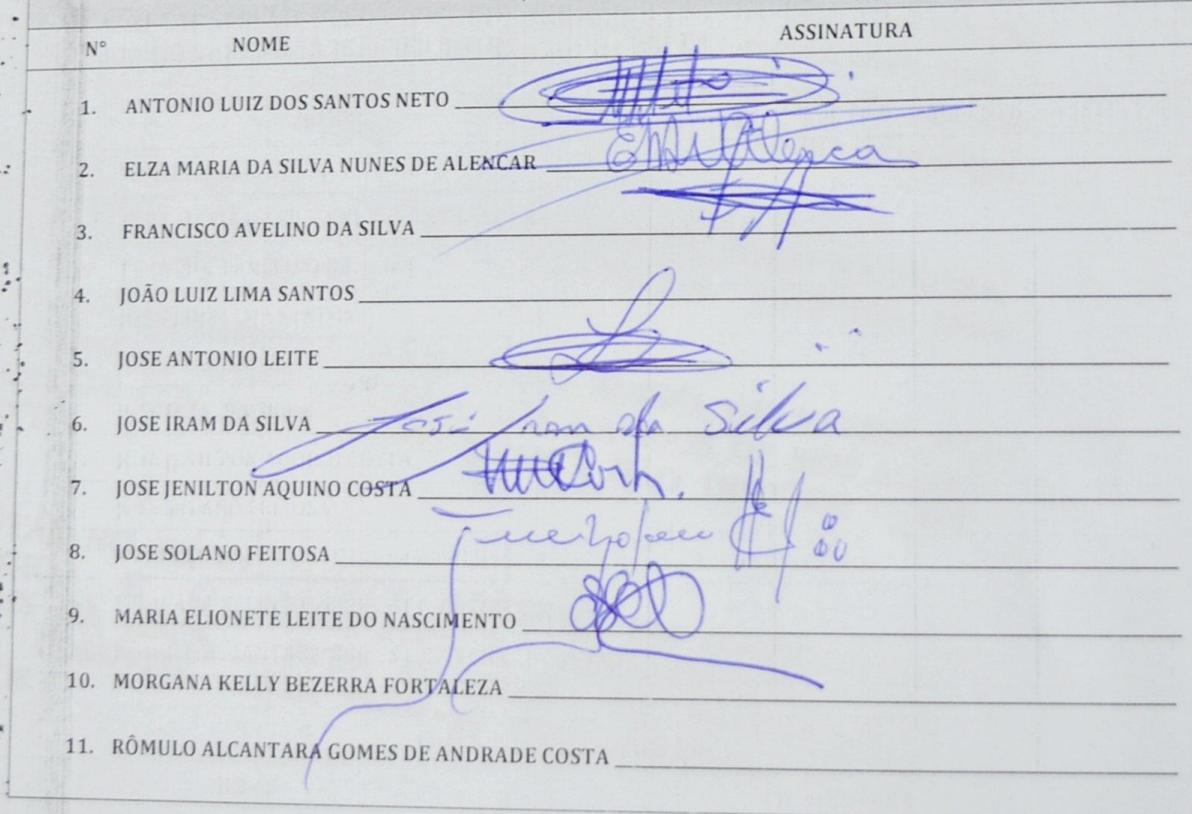 N° NOME ASSINATURA
1. ANTONIO LUIZ DOS SANTOS NETO
2. ELZA MARIA DA SILVA NUNES DE ALENCAR
3. FRANCISCO AVELINO DA SILVA
4. JOÃO LUIZ LIMA SANTOS
5. JOSE ANTONIO LEITE
6. JOSE IRAM DA SILVA José Iram da Silva
7. JOSE JENILTON AQUINO COSTA
8. JOSE SOLANO FEITOSA
9. MARIA ELIONETE LEITE DO NASCIMENTO
10. MORGANA KELLY BEZERRA FORTALEZA
11. RÔMULO ALCANTARA GOMES DE ANDRADE COSTA